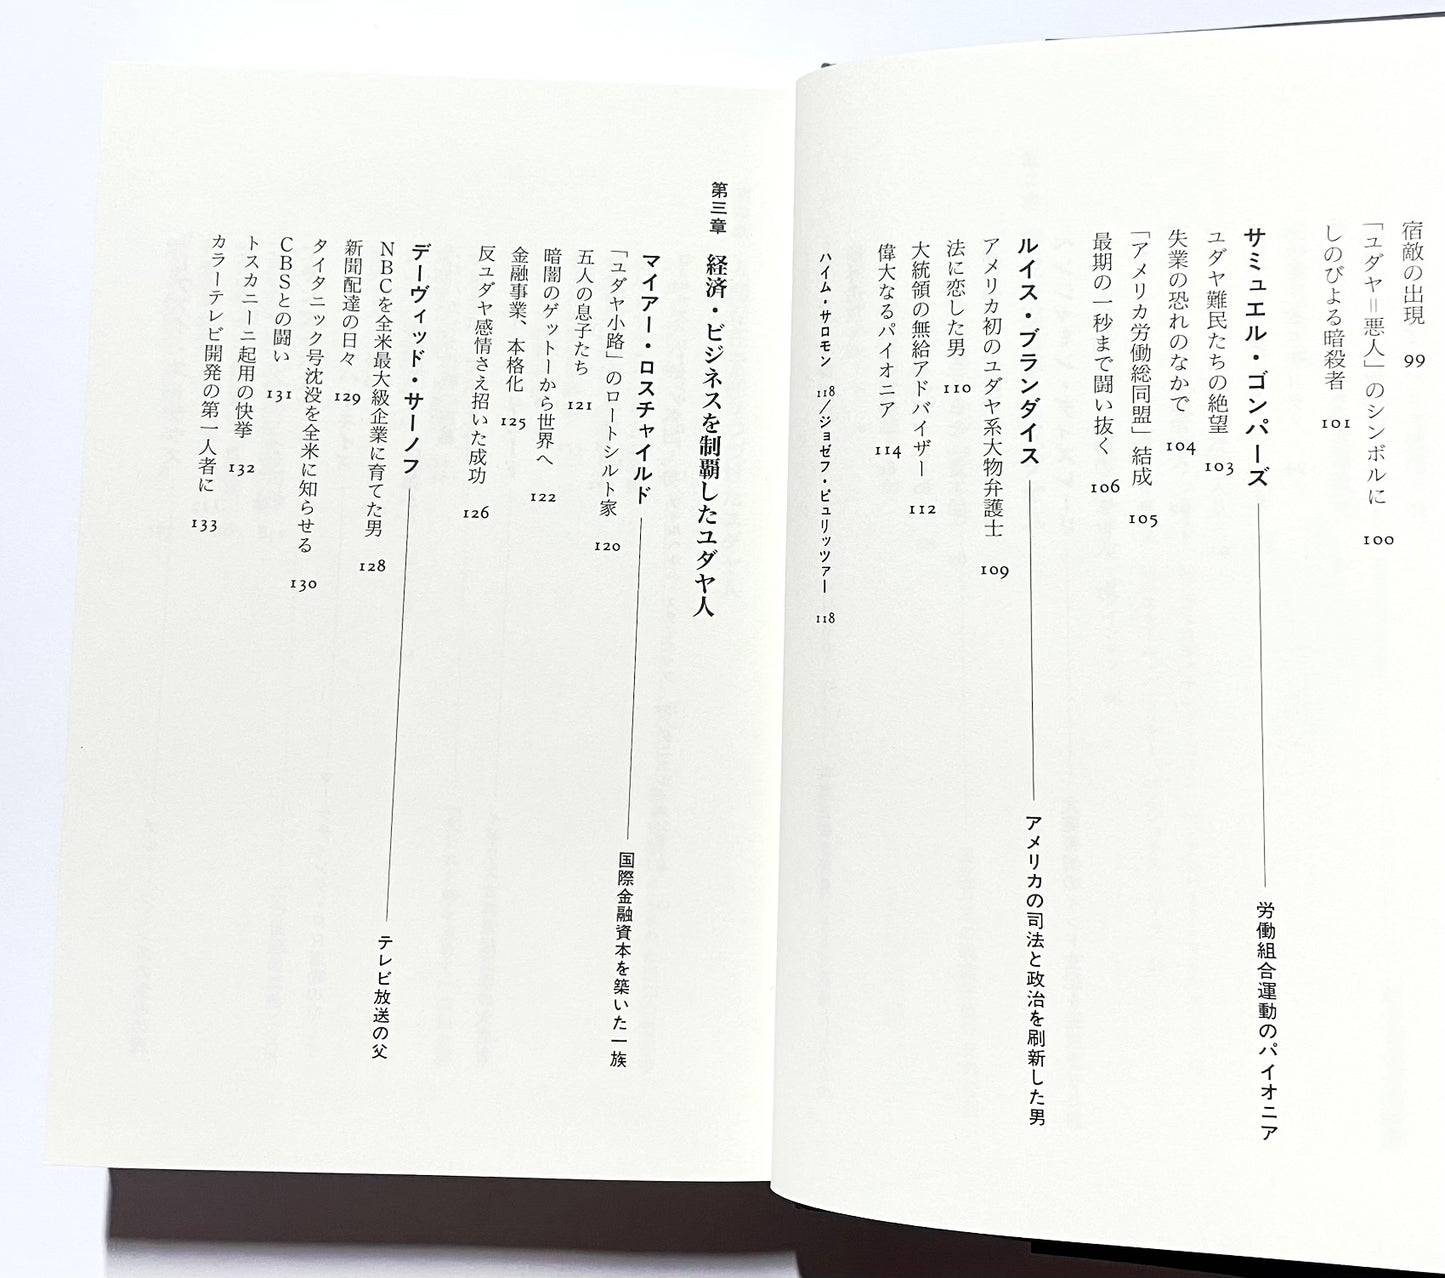 宿敵の出現 99
「ユダヤ＝悪人」のシンボルに 100
しのびよる暗殺者 101
サミュエル・ゴンパーズ――労働組合運動のパイオニア
ユダヤ難民たちの絶望 103
失業の恐れのなかで 104
「アメリカ労働総同盟」結成 105
最期の一秒まで闘い抜く 106
ルイス・ブランダイス――アメリカの司法と政治を刷新した男
アメリカ初のユダヤ系大物弁護士 109
法に恋した男 110
大統領の無給アドバイザー 112
偉大なるパイオニア 114
ハイム・サロモン 118／ジョゼフ・ピュリッツァー 118
第三章 経済・ビジネスを制覇したユダヤ人
マイアー・ロスチャイルド――国際金融資本を築いた一族
「ユダヤ小路」のロートシルト家 120
五人の息子たち 121
暗闇のゲットーから世界へ 122
金融事業、本格化 125
反ユダヤ感情さえ招いた成功 126
デーヴィッド・サーノフ――テレビ放送の父
NBCを全米最大級企業に育てた男 128
新聞配達の日々 129
タイタニック号沈没を全米に知らせる 130
CBSとの闘い 131
トスカニーニ起用の快挙 132
カラーテレビ開発の第一人者に 133